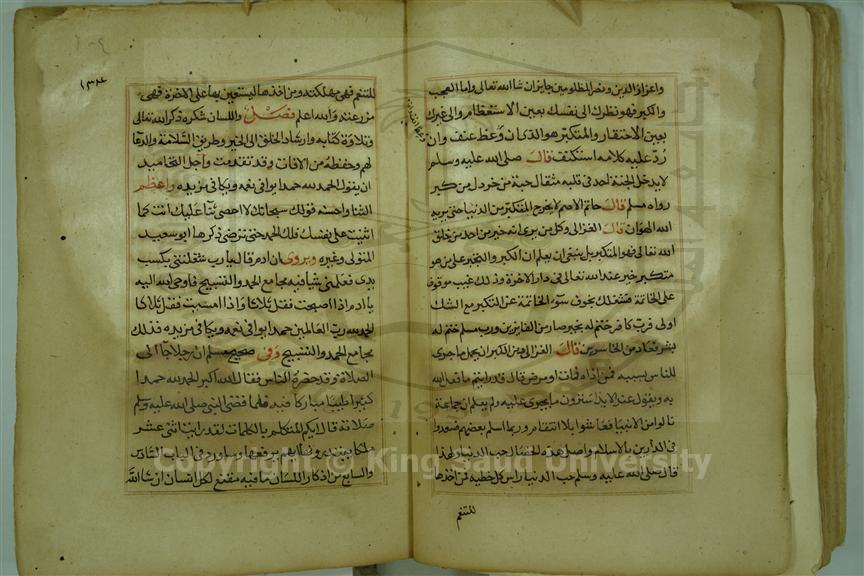 واعزاز الدين ونصر المظلومين جايز ان شا الله تعالى واما العجب
والكبر فهو نظرك الى نفسك بعين الاستعظام والى غيرك
بعين الاحتقار والمتكبر هو الذي ان وعظ عنف وان
رد عليه كلامه استنكف قال صلى الله عليه وسلم
لا يدخل الجنة احد في قلبه مثقال حبة من خردل من كبر
رواه مسلم قال حاتم الاصم لا يخرج المتكبر من الدنيا حتى يريه
الله الهوان قال الغزالي وكل من يرى انه خير من احد من خلق
الله تعالى فهو المتكبر بل ينبغي ان يعلم ان الكبر والتجبر على من هو
متكبر خير عند الله تعالى في دار الاخرة وذلك غيب موقوف
على الخاتمة فشغلك بخوف سوء الخاتمة عن التكبر مع الشك
اولى فرب كافر ختم له بخير صار من الفايزين ورب مسلم ختم له
بشر فعاد من الخاسرين قال الغزالي ومن الكبر ان يحمل ما جرى
للناس بسببه فمن اذاه فمات او مرض قال قد رايتم ما فعل الله
به ويقول عند الايذا سترون ما يجرى عليه ولم يعلم ان جماعة
نالوا من الانبيا فعاشوا بلا انتقام وربما اسلم بعضهم فسعدوا
في الدارين بالاسلام واصل هذه الخصال حب الدنيا ولهذا
قال صلى الله عليه وسلم حب الدنيا راس كل خطيه فمن اخذها
للتنعم
١٣٤
للتنعم فهى مهلكته ومن اخذها ليستعين بها على الاخرة فهى
مزرعته والله اعلم فصل واللسان شكره ذكر الله تعالى
وتلاوة كتابه وارشاد الخلق الى الخير وطريق السلامة والدعا
لهم وحفظه من الافات وقد تقدمت واجل التحاميد
ان يقول الحمد لله حمدا يوافي نعمه ويكافي مزيده واعظم
الثنا واحسنه قولك سبحانك لا احصي ثنا عليك انت كما
اثنيت على نفسك فلك الحمد حتى ترضى ذكرها ابو سعيد
المتولى وغيره ويروى ان ادم قال يا رب شغلتني بكسب
يدى فعلمني شيا فيه مجامع الحمد والتسبيح فاوحى الله اليه
يا ادم اذا اصبحت فقل ثلاثا واذا امسيت فقل ثلاثا
الحمد لله رب العالمين حمدا يوافي نعمه ويكافي مزيده فذلك
مجامع الحمد والتسبيح وفي صحيح مسلم ان رجلا جا الى
الصلاة وقد حضره الناس فقال الله اكبر الحمد لله حمدا
كثيرا طيبا مباركا فيه فلما قضى النبي صلى الله عليه وسلم
صلاته قال ايكم المتكلم بالكلمات لقد رايت اثنى عشر
ملكا يبتدرونها ايهم يرفعها وساورد في الباب السادس
والسابع من اذكار اللسان ما فيه مقنع لكل انسان ان شا الله
Copyright © King Saud University